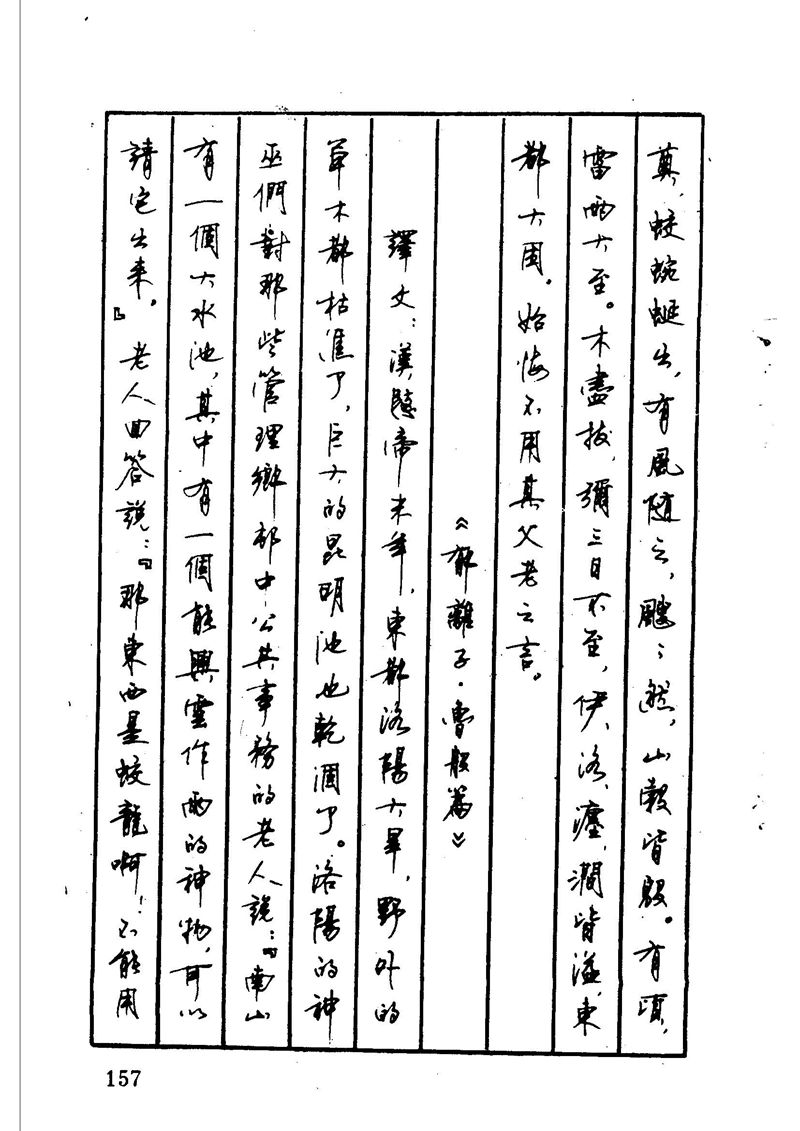 奠，蛟蜿蜒出，有風隨之，颼﹕然，山穀皆殷。有頃，
雷雨大至。木盡拔，彌三日不至，伊、洛、瀍、澗皆溢，東
都大困。始悔不用其父老之言。
《郁離子·魯般篇》
譯文：漢愍帝末年，東都洛陽大旱，野外的
草木都枯焦了，巨大的昆明池也乾涸了。洛陽的神
巫們對那些管理鄉都中公共事務的老人說：『南山
有一個大水池，其中有一個能興雲作雨的神物，可以
請它出來。』老人回答說：『那東西是蛟龍啊！不能用
157